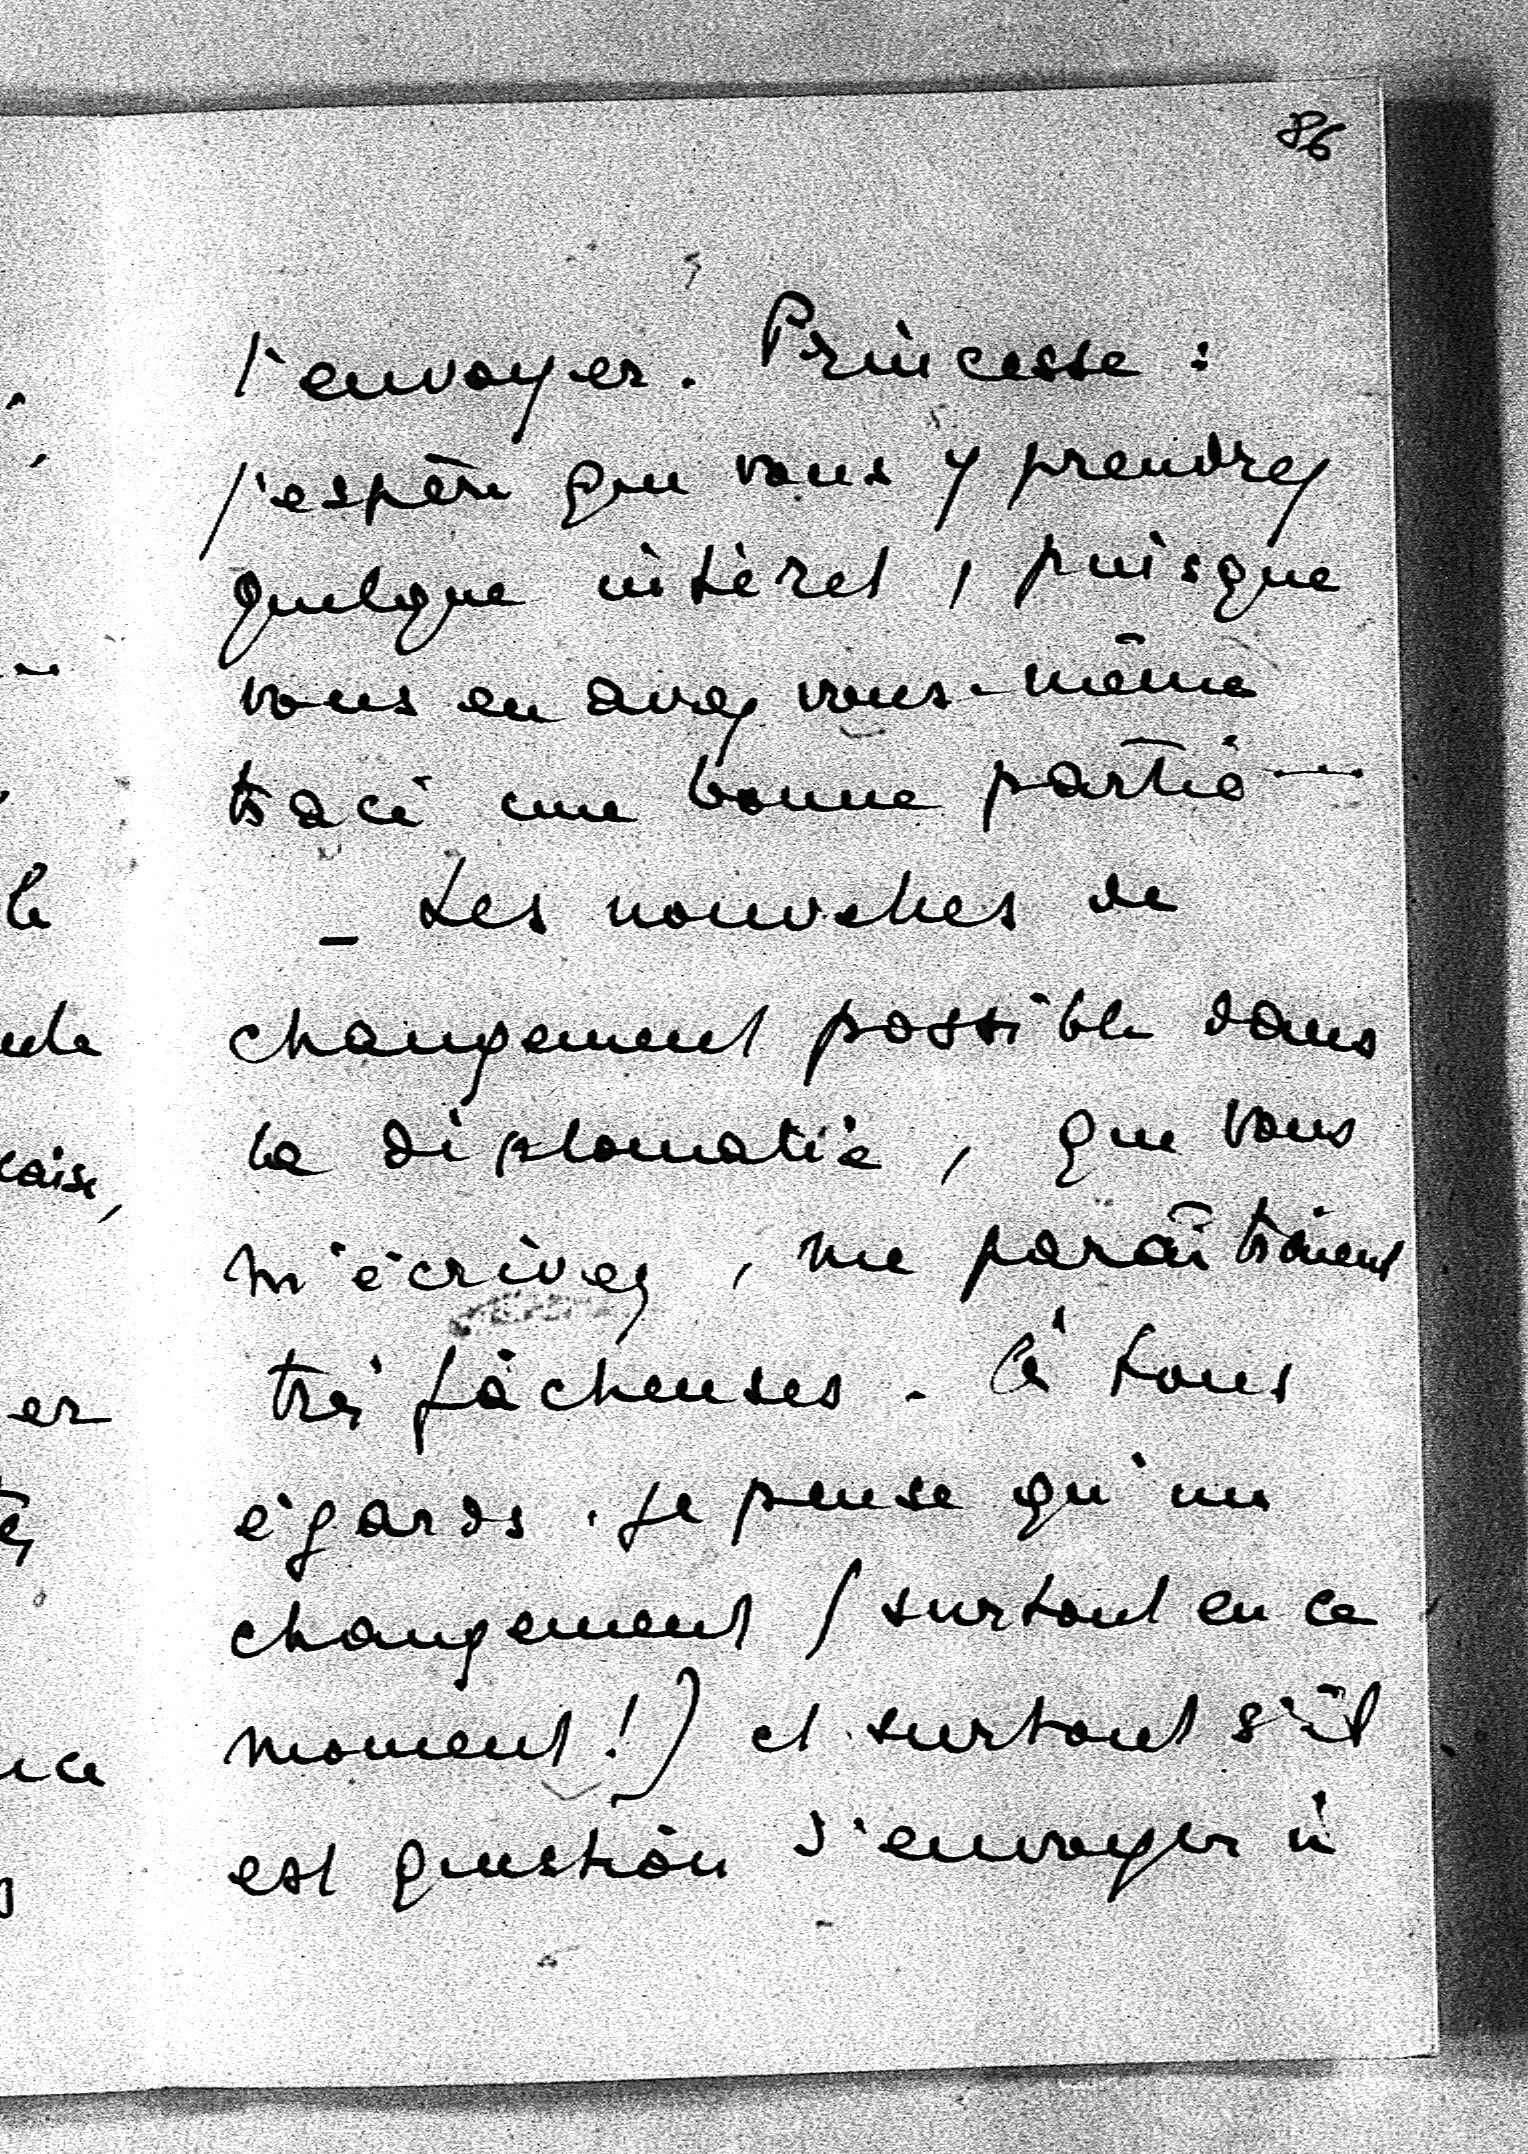 86
l'envoyer. Princesse :
j'espère que vous y prendrez
quelque intèret, puisque
vous en avez vous-même
tracé une bonne partie —
— Les nouvelles de
changement possible dans
la diplomatie, que vous
m'écrivez, me paraîtraient
très fâcheuses. À tous
égards. Je pense qu'un
changement (surtout en ce
moment!) et surtout s'il
est question d'envoyer ù